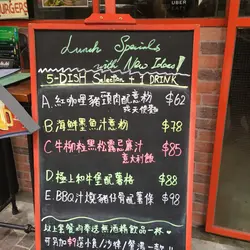 BURGERS
UBER
Lunch Specials
with New Ideas!
5-DISH Selection + 1 DRINK
A. 紅咖哩豬頸肉配意粉 $62
B 海鮮墨魚汁意粉 $78
C 牛柳粒黑松露忌廉汁 $85
意大利飯
D 極上和牛堡配薯格 $88
E. BBQ汁燒豬仔骨配薯條 $98
以上套餐均奉送無酒精飲品一杯